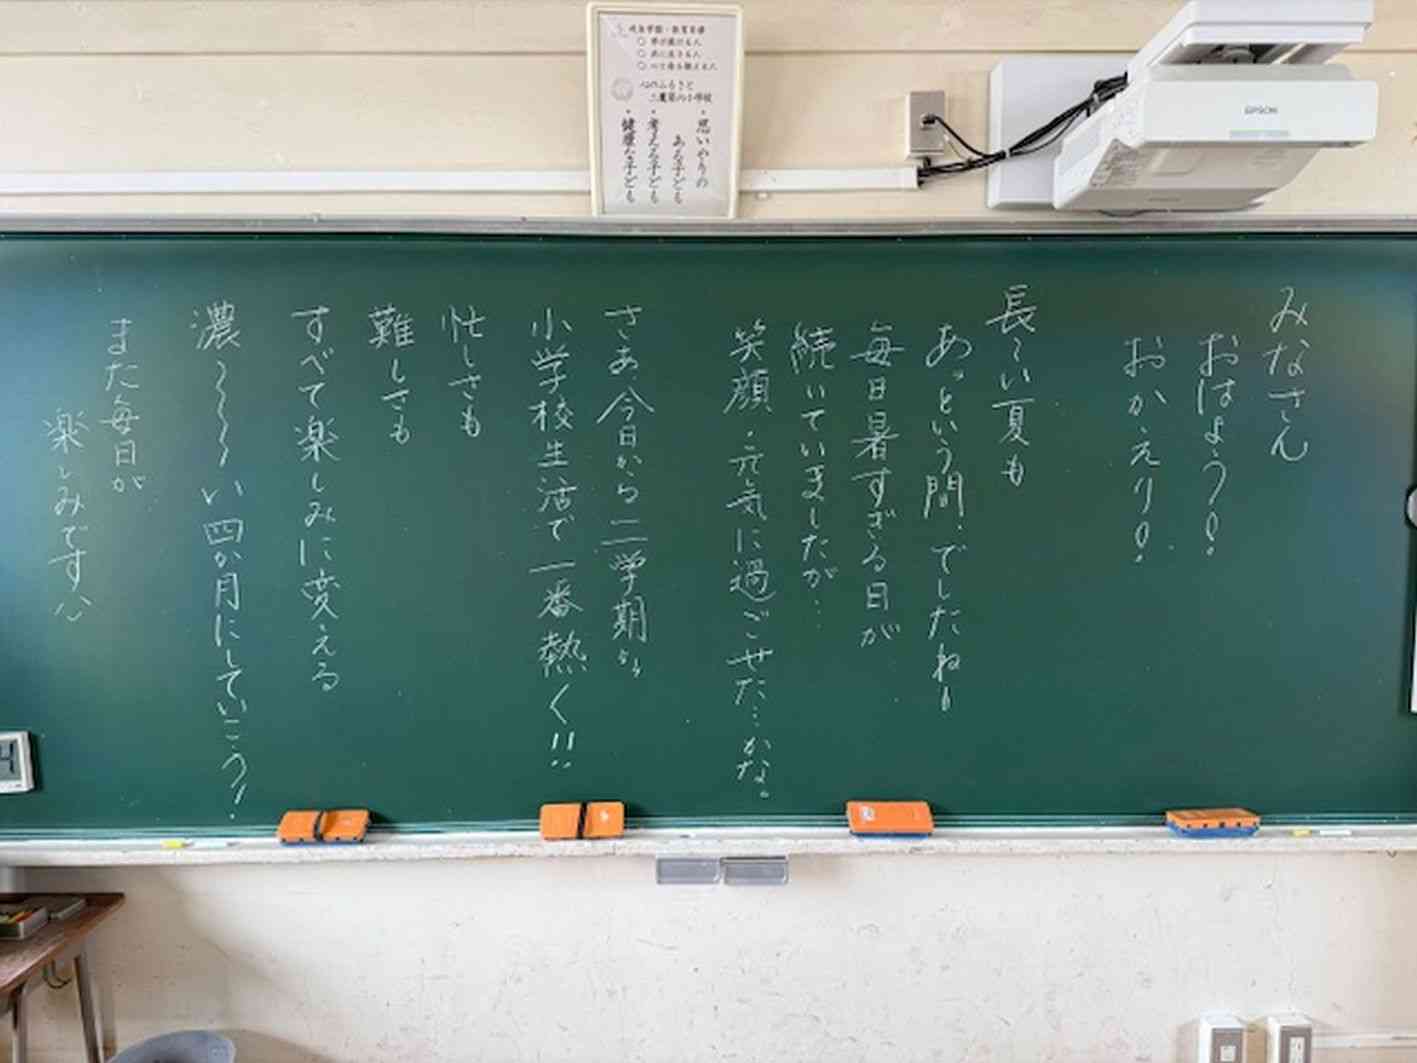 教育目標
○ 学び続ける人
○ 共に生きる人
心のふるさと
・思いやりの
ある子ども
・考える子ども
・健康な子ども
EPSON
みなさん
おはよう!
おかえり!
長〜い夏も
あっという間でしたね!
毎日暑すぎる日が
続いていましたが…
笑顔・元気に過ごせた…かな。
さあ、今日から二学期
小学校生活で一番熱く!!
忙しさも
難しさも
すべて楽しみに変える
濃〜〜〜い四か月にしていこう!
また毎日が
楽しみです^^
4